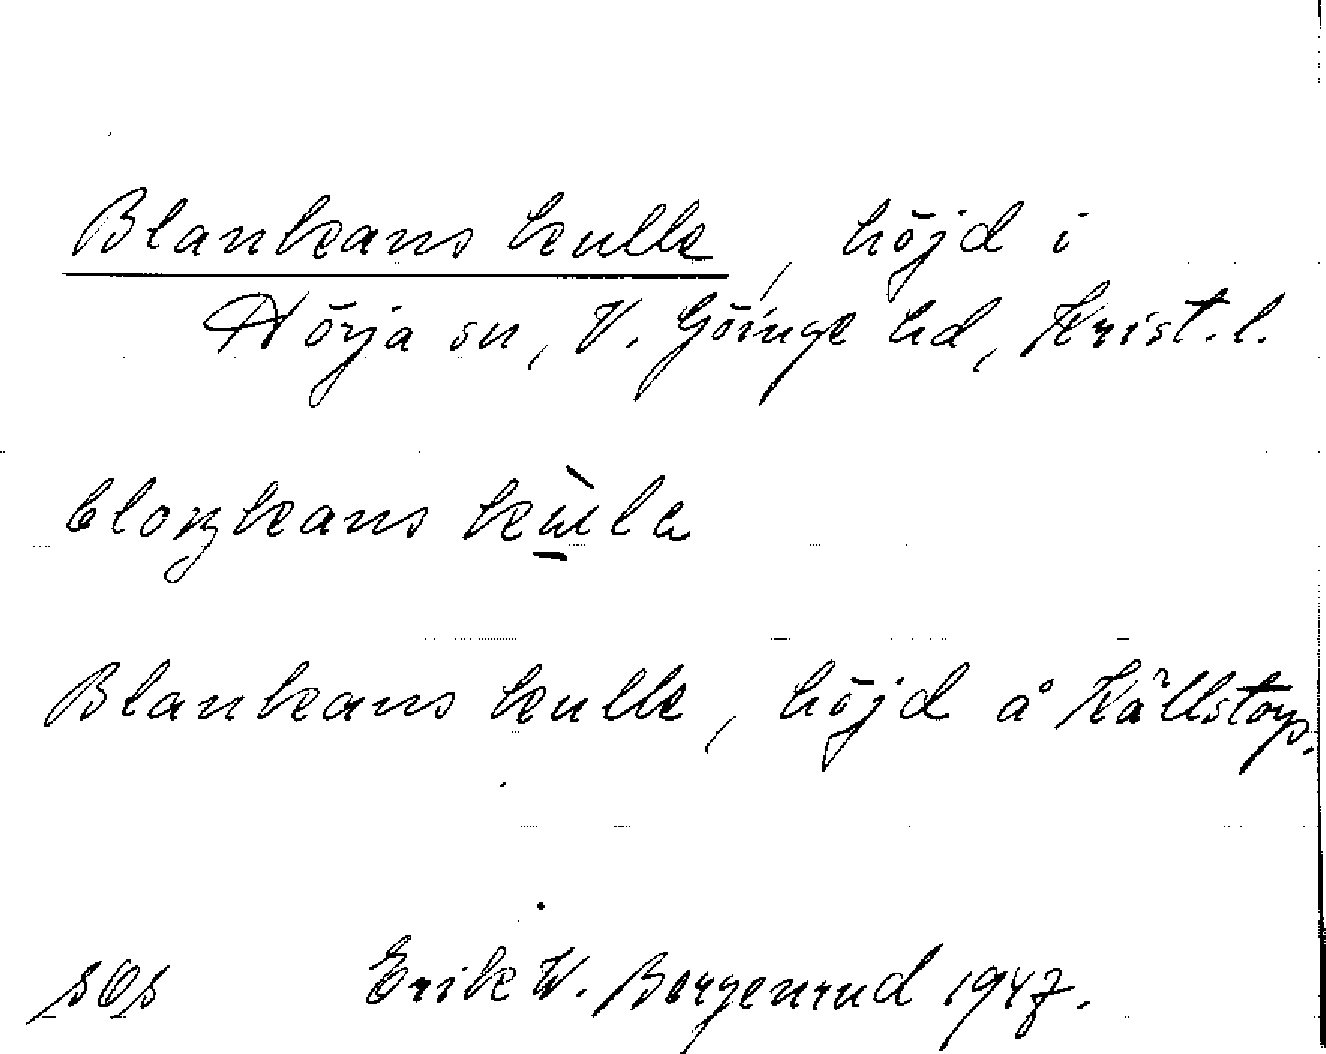 Blankans kulle, höjd i
Nörja sn, V. Göinge hd, Krist. l.
Blankans kulle, höjd å Källstorp.
Erik W. Bergenrud 1947.